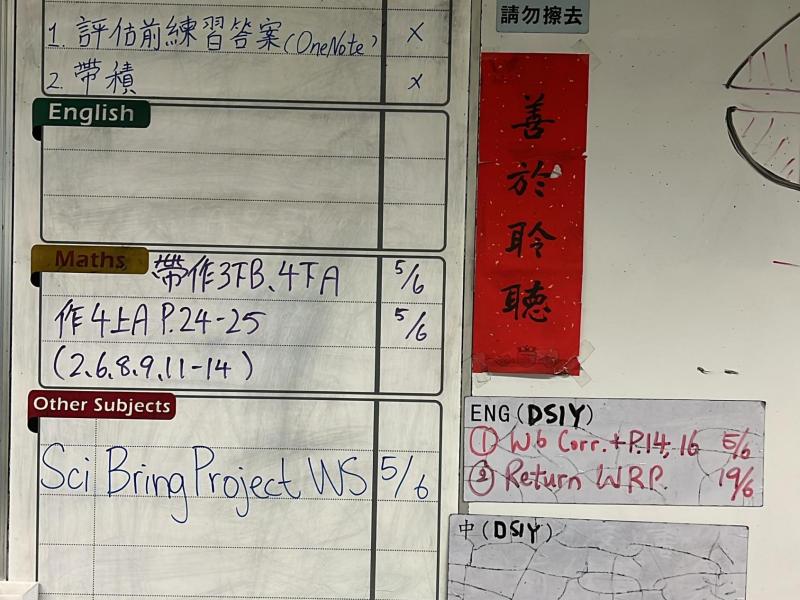 1. 評估前練習答案(OneNote) ×
2. 帶積 ×
English
Maths
帶作3下B、4下A 5/6
作4上A P.24-25 5/6
(2、6、8、9、11-14)
Other Subjects
Sci Bring Project WS 5/6
請勿擦去
善於聆聽
ENG (DSIY)
① Wb Corr. + P.14, 16 5/6
② Return WRP. 19/6
中 (DSIY)